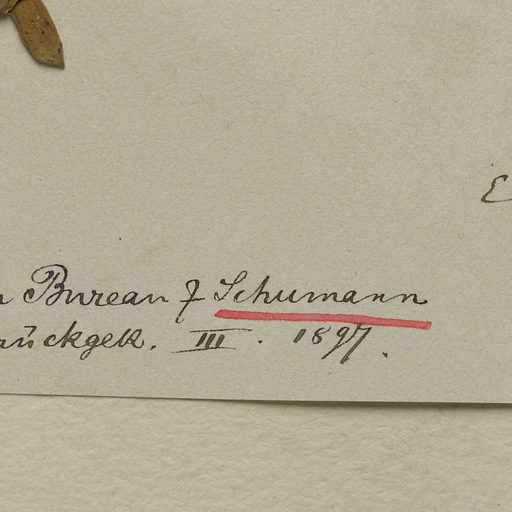 Bureau f Schumann
rückgek. III. 1897.